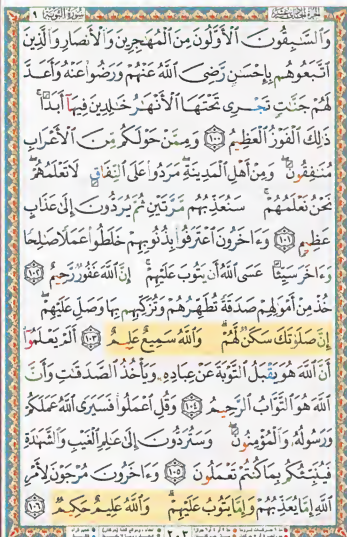 سورة التوبة ٩
وَالسَّٰبِقُونَ الْأَوَّلُونَ مِنَ الْمُهَٰجِرِينَ وَالْأَنصَارِ وَالَّذِينَ
اتَّبَعُوهُم بِإِحْسَٰنٍ رَّضِيَ اللَّهُ عَنْهُمْ وَرَضُوا عَنْهُ وَأَعَدَّ
لَهُمْ جَنَّٰتٍ تَجْرِي تَحْتَهَا الْأَنْهَٰرُ خَٰلِدِينَ فِيهَا أَبَدًا ۚ
ذَٰلِكَ الْفَوْزُ الْعَظِيمُ ١٠٠ وَمِمَّنْ حَوْلَكُم مِّنَ الْأَعْرَابِ
مُنَٰفِقُونَ ۖ وَمِنْ أَهْلِ الْمَدِينَةِ ۖ مَرَدُوا عَلَى النِّفَاقِ لَا تَعْلَمُهُمْ ۖ
نَحْنُ نَعْلَمُهُمْ ۚ سَنُعَذِّبُهُم مَّرَّتَيْنِ ثُمَّ يُرَدُّونَ إِلَىٰ عَذَابٍ
عَظِيمٍ ١٠١ وَءَاخَرُونَ اعْتَرَفُوا بِذُنُوبِهِمْ خَلَطُوا عَمَلًا صَٰلِحًا
وَءَاخَرَ سَيِّئًا عَسَى اللَّهُ أَن يَتُوبَ عَلَيْهِمْ ۚ إِنَّ اللَّهَ غَفُورٌ رَّحِيمٌ ١٠٢
خُذْ مِنْ أَمْوَٰلِهِمْ صَدَقَةً تُطَهِّرُهُمْ وَتُزَكِّيهِم بِهَا وَصَلِّ عَلَيْهِمْ ۖ
إِنَّ صَلَوٰتَكَ سَكَنٌ لَّهُمْ ۗ وَاللَّهُ سَمِيعٌ عَلِيمٌ ١٠٣ أَلَمْ يَعْلَمُوا
أَنَّ اللَّهَ هُوَ يَقْبَلُ التَّوْبَةَ عَنْ عِبَادِهِ وَيَأْخُذُ الصَّدَقَٰتِ وَأَنَّ
اللَّهَ هُوَ التَّوَّابُ الرَّحِيمُ ١٠٤ وَقُلِ اعْمَلُوا فَسَيَرَى اللَّهُ عَمَلَكُمْ
وَرَسُولُهُ وَالْمُؤْمِنُونَ ۖ وَسَتُرَدُّونَ إِلَىٰ عَٰلِمِ الْغَيْبِ وَالشَّهَٰدَةِ
فَيُنَبِّئُكُم بِمَا كُنتُمْ تَعْمَلُونَ ١٠٥ وَءَاخَرُونَ مُرْجَوْنَ لِأَمْرِ
اللَّهِ إِمَّا يُعَذِّبُهُمْ وَإِمَّا يَتُوبُ عَلَيْهِمْ ۗ وَاللَّهُ عَلِيمٌ حَكِيمٌ ١٠٦
٢٠٣